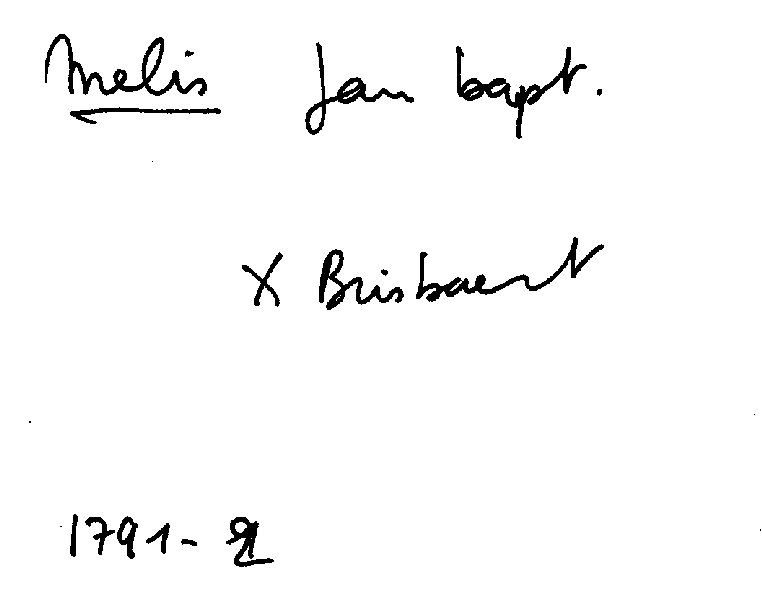 Melis Jan bapt.
X Brisbaert
1791-